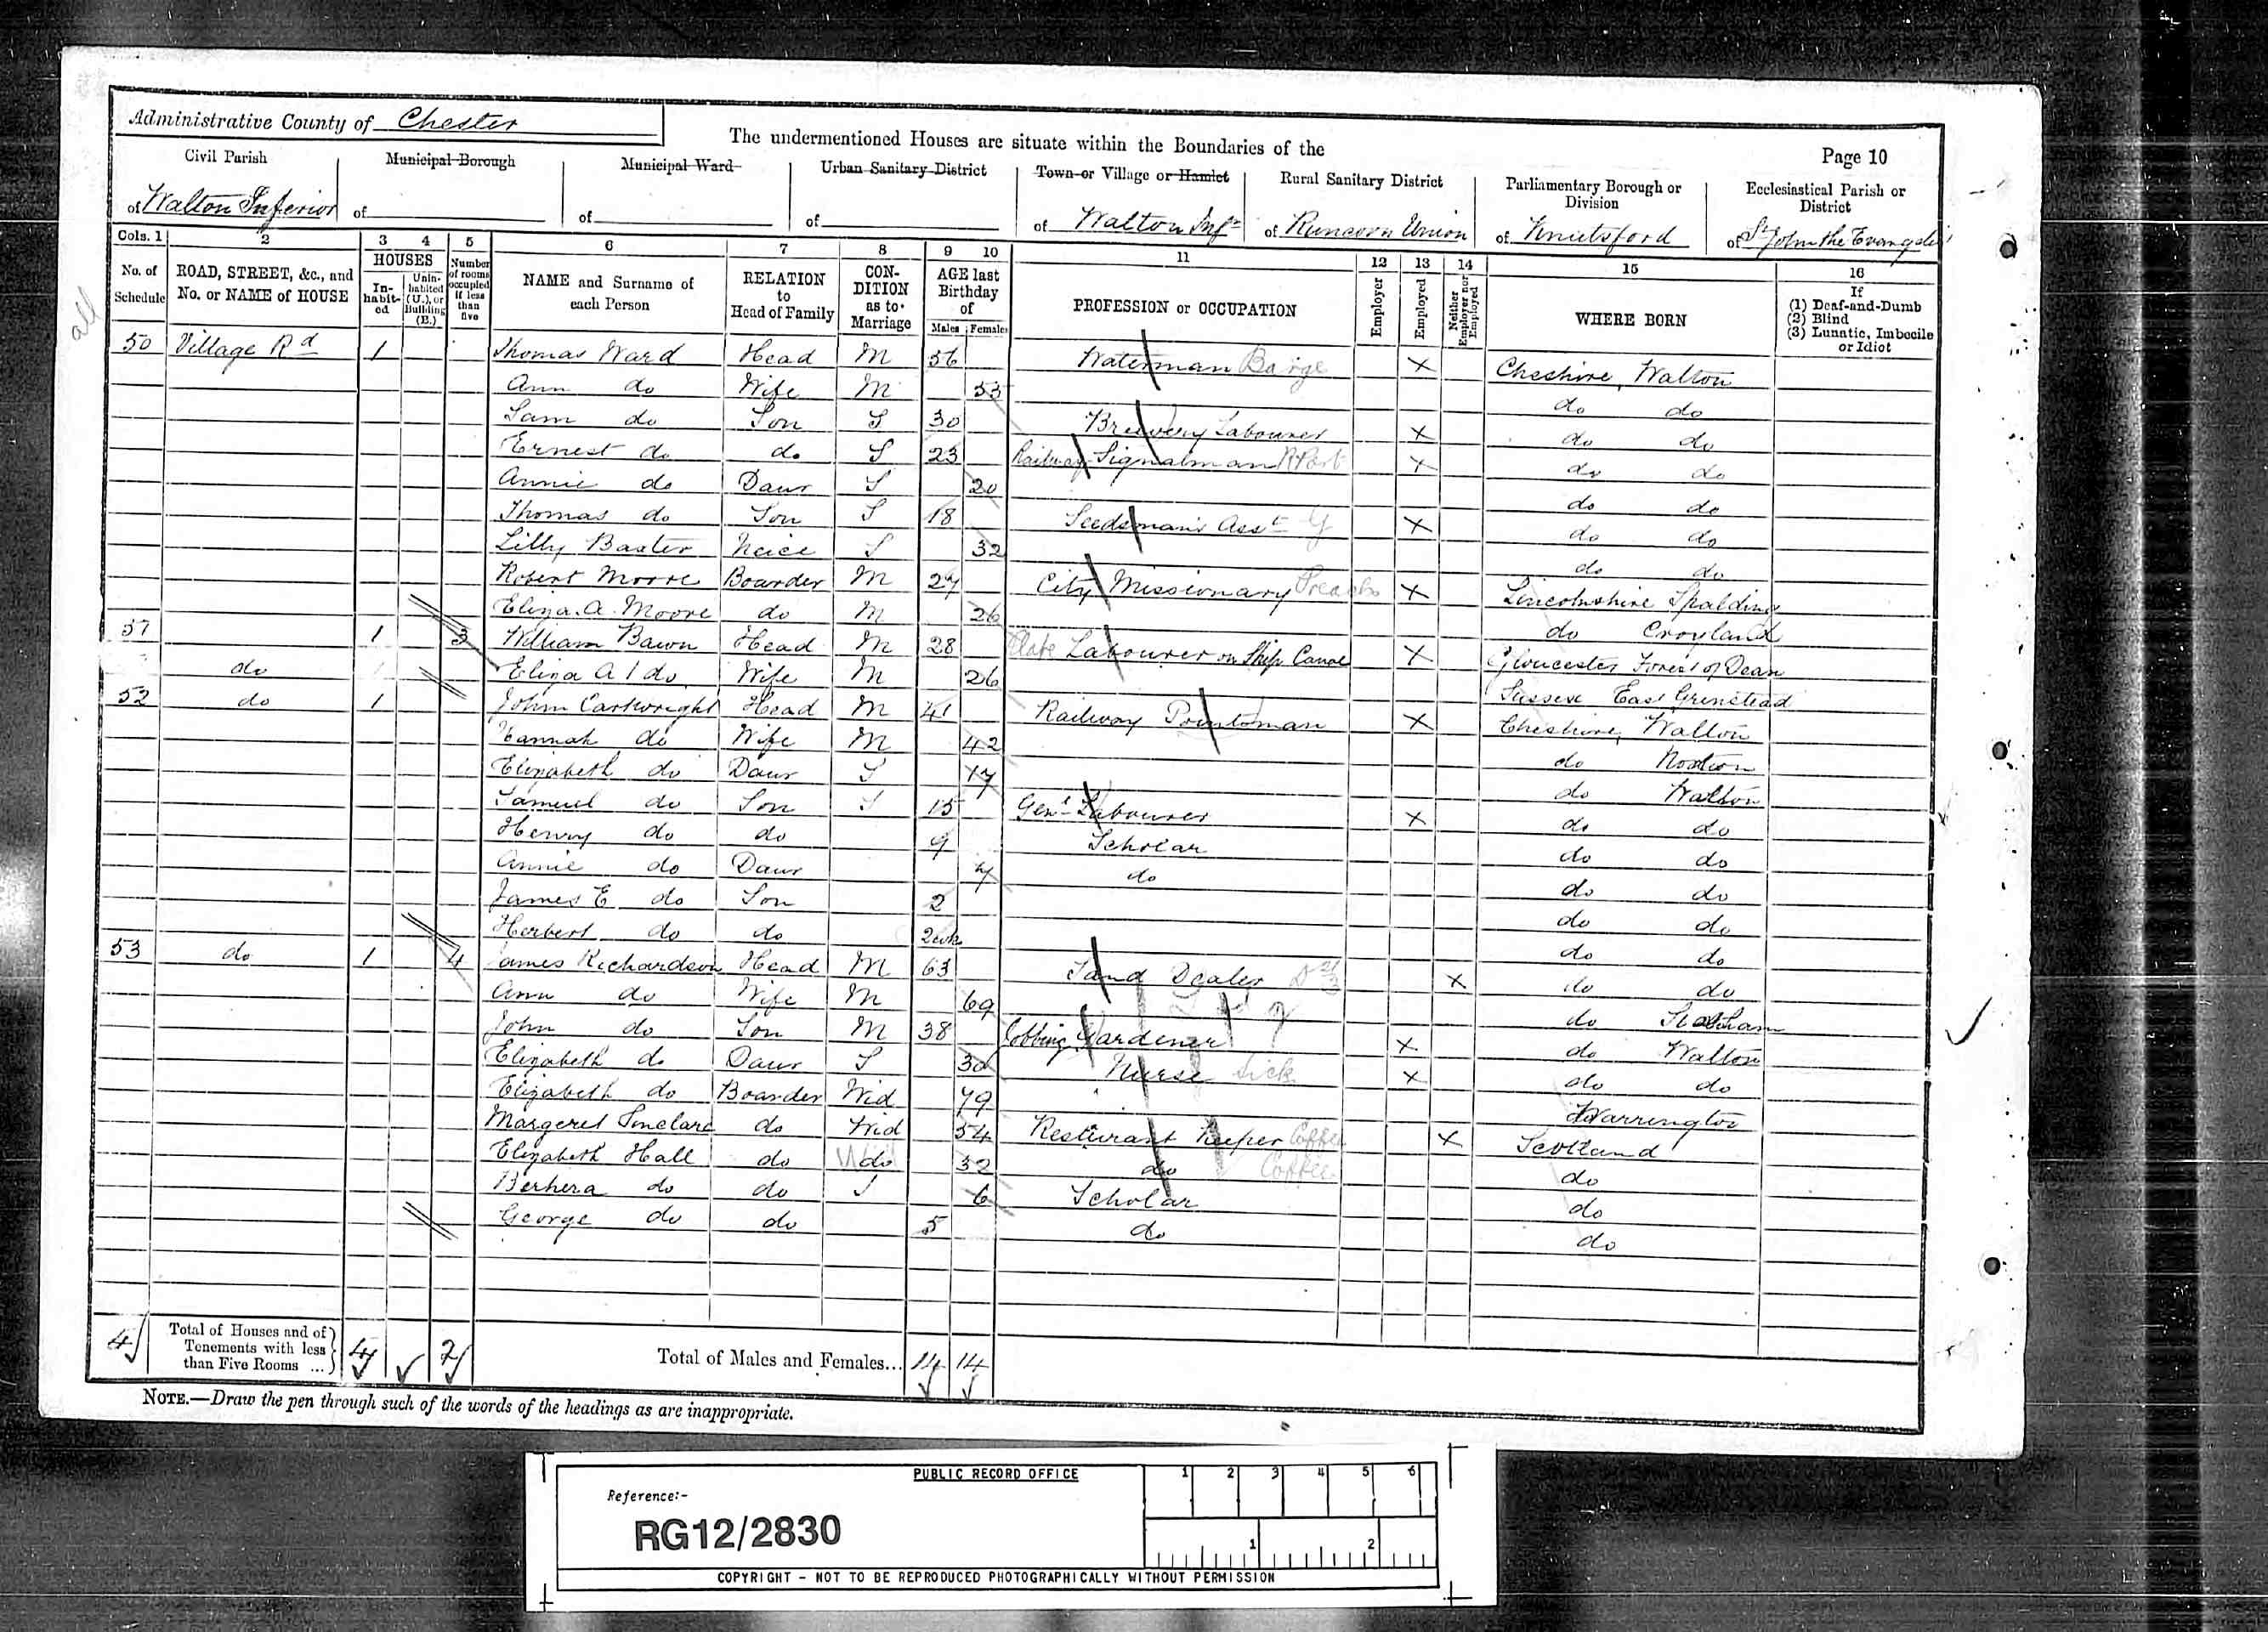 Administrative County of Chester
The undermentioned Houses are situate within the Boundaries of the
Page 10
Civil Parish
Municipal Borough
Municipal Ward
Urban Sanitary District
Town or Village or Hamlet
Rural Sanitary District
Parliamentary Borough or Division
Ecclesiastical Parish or District
of Walton Inferior
of
of
of
of Walton Infr
of Runcorn Union
of Knutsford
of St John the Evangelist
Cols. 1 2 3 4 5 6 7 8 9 10 11 12 13 14 15 16
No. of Schedule
ROAD, STREET, &c., and No. or NAME of HOUSE
HOUSES
In-habit-ed
Unin-habited (U.), or Building (B.)
Number of rooms occupied if less than five
NAME and Surname of each Person
RELATION to Head of Family
CON-DITION as to Marriage
AGE last Birthday of
Males Females
PROFESSION or OCCUPATION
Employer
Employed
Neither Employer nor Employed
WHERE BORN
If
(1) Deaf-and-Dumb
(2) Blind
(3) Lunatic, Imbecile or Idiot
all
50 Village Rd 1 Thomas Ward Head M 56 Waterman Barge X Cheshire, Walton
Ann do Wife M 53 do do
Sam do Son S 30 Brewery Labourer X do do
Ernest do do S 23 Railway Signalman X do do
Annie do Daur S 20 do do
Thomas do Son S 18 Seedsman's Asst X do do
Lilly Baxter Neice S 32 do do
Robert Moore Boarder M 27 City Missionary X Lincolnshire Spalding
Eliza. A. Moore do M 26 do Croyland
51 1 3 William Bawn Head M 28 Labourer on Ship Canal X Gloucester Forest of Dean
do Eliza A do Wife M 26 Sussex East Grinstead
52 do 1 John Cartwright Head M 41 Railway Pointsman X Cheshire, Walton
Hannah do Wife M 42 do Norton
Elizabeth do Daur S 17 do Walton
Samuel do Son S 15 Genl Labourer X do do
Henry do do 9 Scholar do do
Annie do Daur 7 do do do
James E do Son 2 do do
Herbert do do 2wk do do
53 do 1 4 James Richardson Head M 63 Sand Dealer X do do
Ann do Wife M 69 do
John do Son M 38 Jobbing Gardener X do Walton
Elizabeth do Daur S 30 Nurse Sick X do do
Elizabeth do Boarder Wid 79 Warrington
Margeret Sinclare do Wid 54 Resturant Keeper Coffee X Scotland
Elizabeth Hall do do 32 do Coffee do
Berhera do do S 6 Scholar do
George do do 5 do do
4 Total of Houses and of Tenements with less than Five Rooms ... 4 2 Total of Males and Females... 14 14
NOTE.—Draw the pen through such of the words of the headings as are inappropriate.
PUBLIC RECORD OFFICE
1 2 3 4 5 6
Reference:-
RG12/2830
1 2
COPYRIGHT - NOT TO BE REPRODUCED PHOTOGRAPHICALLY WITHOUT PERMISSION